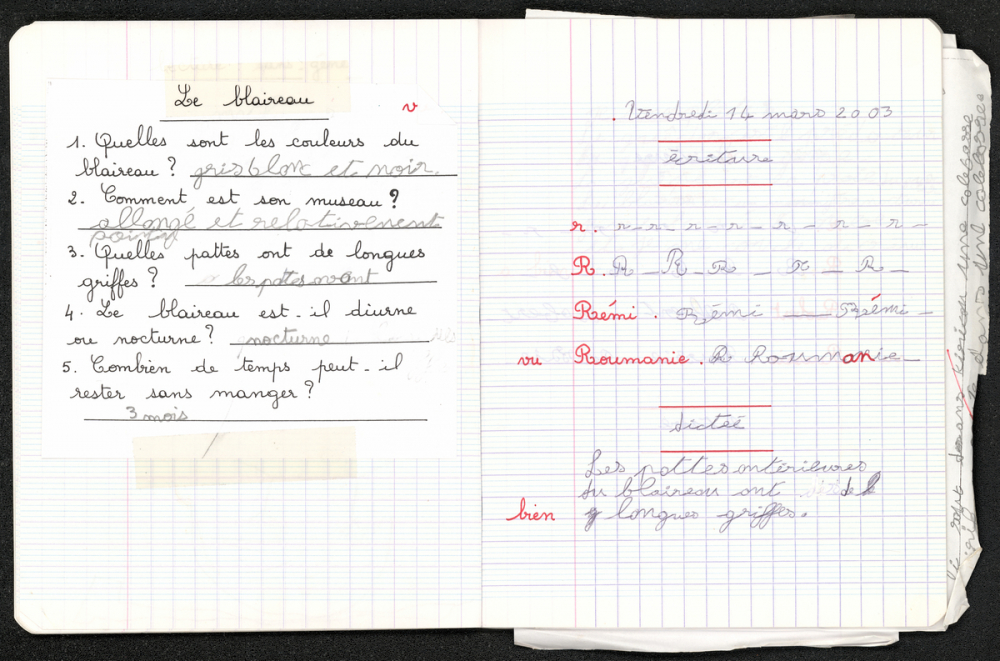 Le blaireau
v
1. Quelles sont les couleurs du
blaireau ? gris blanc et noir.
2. Comment est son museau ?
allongé et relativement
pointu
3. Quelles pattes ont de longues
griffes ? les pattes avant
4. Le blaireau est-il diurne
ou nocturne ? nocturne
5. Combien de temps peut-il
rester sans manger ?
3 mois
Vendredi 14 mars 2003
écriture
r. r r r r r r r
R. R R R R R
Rémi. Rémi Rémi
vu Roumanie. R Roumanie
dictée
Les pattes intérieures
du blaireau ont de
bien longues griffes.